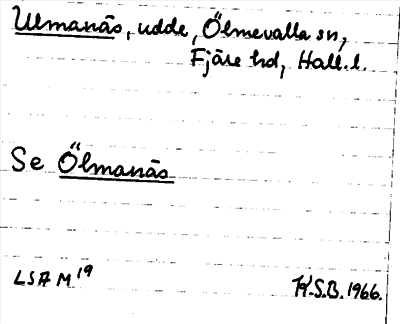 Ulmanäs, udde, Ölmevalla sn,
Fjäre hd, Hall. l.
Se Ölmanäs
LSA M 19
K.S.B. 1966.